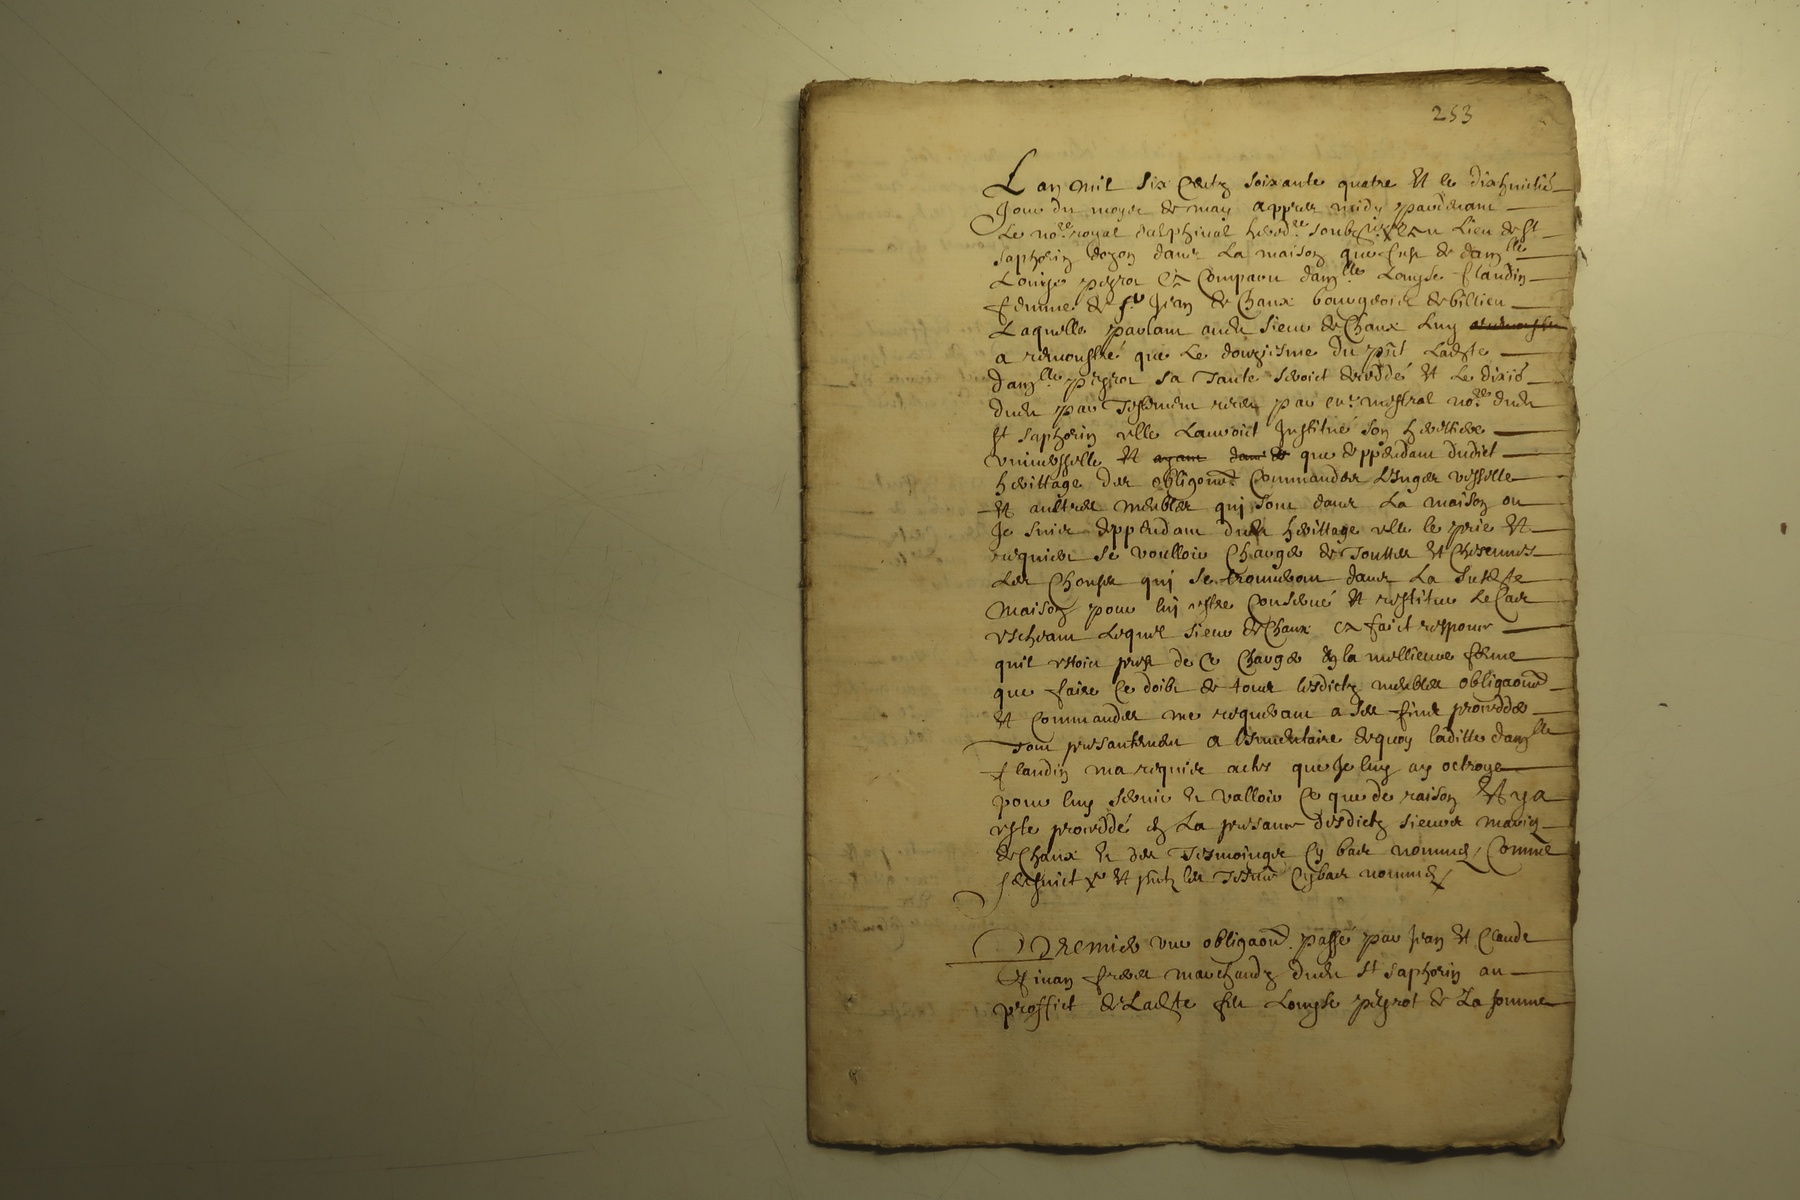 253
L an mil six centz soixante quatre et le dixhuictie
Jour du moys de may appres midy pardevant
Le nore royal dalphinal hered.re soubzsigné au Lieu de St
saphorin dozon dans La maison que fust de dam.lle
Louyse peyrot est Comparu dam.lle Louyse flandin
femme de sr Jean de Chaux bourgeois de billieu
Laquelle parlant audit sieur de Chaux Luy
a remonstré que Le douziesme du pnt Ladite
dam.lle peyrot sa Tante seroict decedde et Le dixie
dudit par Testement receu par me mistral nore dudit
St saphorin elle Lauroict Institué son heritiere
universselle et ayant dans de que deppendam dudict
herittage des obligaons Commandes Linges vesselle
et aultres meubles qui sont dans La maison ou
Je suis deppendam dudit herittage elle le prie et
requiert se voulloir Charger de Touttes et Chescunes
Les Choses qui se trouveront dans La susdite
maison pour luy estre Conservé et restitue Le Cas
escheant Lequel sieur de Chaux a faict response
quil estoit prest de Ce Charger en la mellieure forme
que faire Ce doibt de tous lesdictz meubles obligaons
et Commandes me requerant a Ses fins procedder
Tout presantement a Linventaire de quoy laditte dam.lle
flandin ma requis acte que Je luy ay octroye
pour luy servir et valloir Ce que de raison Et y a
este proceddé en La presance desdictz sieurs mariez
de Chaux et des Tesmoingz Cy bas nommes Comme
sensuict et pntz les Tesmo Cy bas nommez
Premier une obligaon passé par Jean et Claude
frere marchandz dudit St saphorin au
proffict de Ladite feu Louyse peyrot de La somme